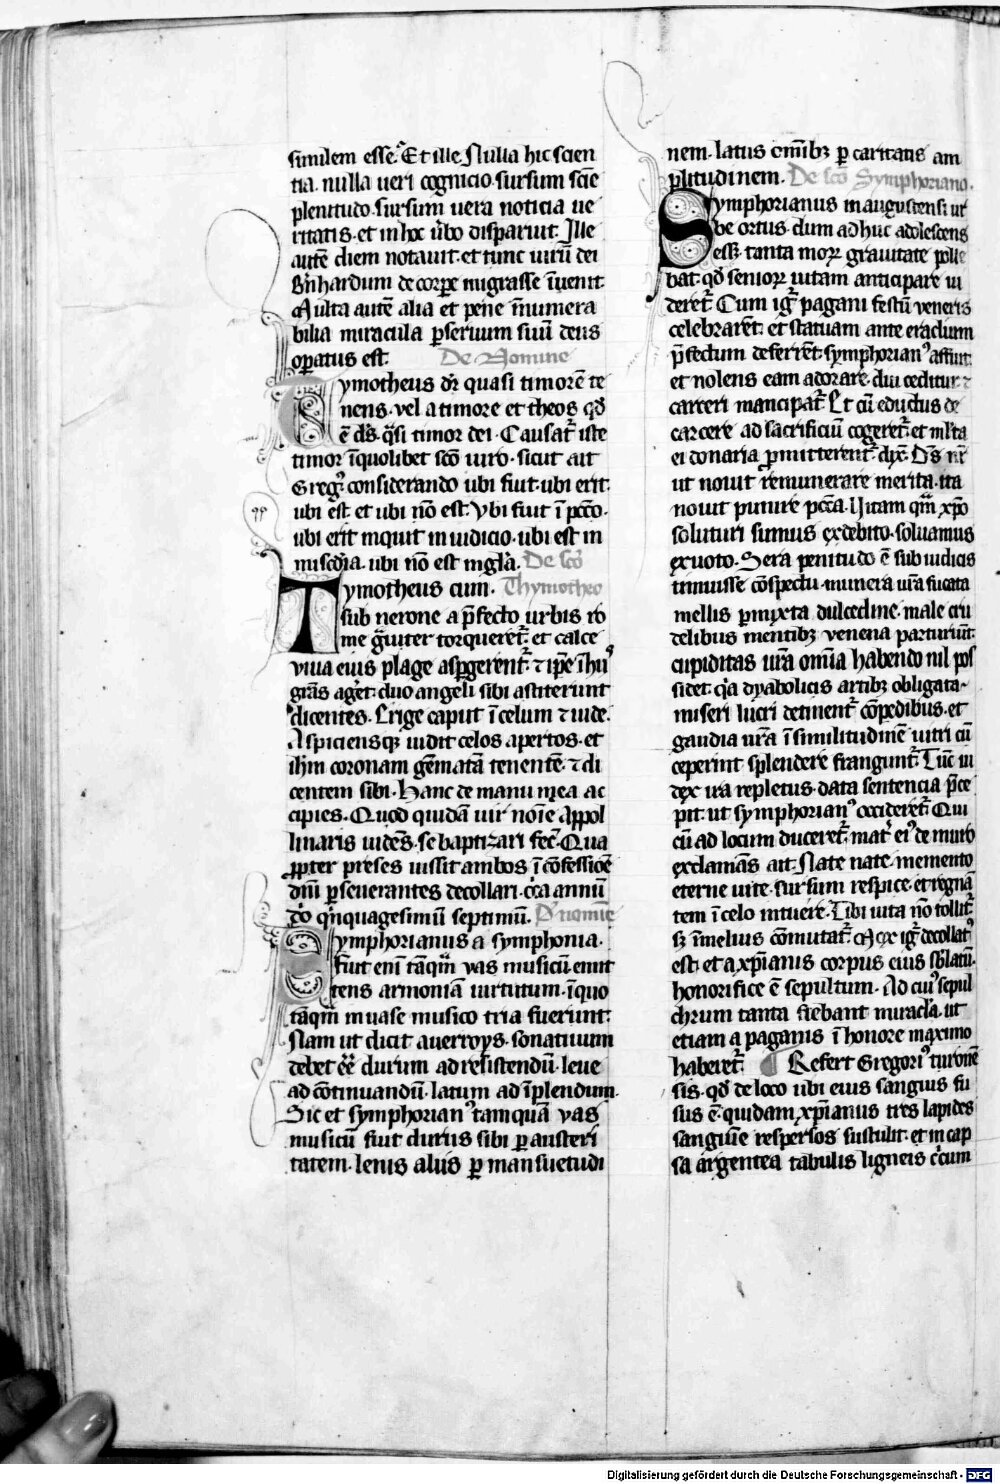 similem esse. Et ille Nulla hic scien
tia. nulla ueri cognicio. sursum scīe
plenitudo. sursum uera noticia ue
ritatis. et in hoc ūbo disparuit. Ille
autē diem notauit. et tunc uirū dei
Bn̄hardum de corpe migrasse īuenit.
Multa autē alia et pene īnumera
bilia miracula p seruum suū deus
opatus est. De Nomine
Tymotheus dr̄ quasi timorē te
nens. vel a timore et theos qd̄
ē ds̄. q̄si timor dei. Causat̄ iste
timor ī quolibet scō uiro. sicut ait
Greg᷒. considerando ubi fuit. ubi erit.
ubi est et ubi nō est. Vbi fuit ī pctō.
ubi erit inquit in iudicio. ubi est in
miscd̄ia. ubi nō est in gl̄a. De scō
Tymotheus cum. Thymotheo
sub nerone a p̄fecto urbis ro
me g̃uiter torqueret̄. et calce
viua eius plage aspgerent̄. ⁊ ip̄e ī hiı᷒
grās aget. duo angeli sibi astiterunt
dicentes. Erige caput ī celum ⁊ uide.
Aspiciensqꝫ uidit celos apertos. et
ihm̄ coronam gēmatā tenentē. ⁊ di
centem sibi. Hanc de manu mea ac
cipies. Quod quidā uir noīe Appol
linaris uidēs. se baptizari fec̄. Qua
ꝓpter preses iussit ambos ī cōfessiōe
dn̄i pseuerantes decollari. cc̄a annū
dō qn̄quagesimū septimū. D' nomīe
Symphorianus a symphonia.
Fuit enī tāq̄m vas musicū emit
tens armoniā uirtutum. ī quo
tāq̄m in uase musico tria fuerunt.
Nam ut dicit auerroys. sonatiuum
debet eē durum ad resistendū. leue
ad cōtinuandū. latum ad īplendum.
Sic et symphorian᷒ tamquā vas
musicū fuit durus sibi p austeri
tatem. lenis aliis p mansuetudi
nem. latus om̄ibꝫ p caritatis am
plitudinem. De scō Symphoriano.
Symphorianus in augustensi ur
be ortus. dum ad huc adolescens
essꝫ. tanta moꝝ grauitate polle
bat. qd̄ senioꝝ uitam anticipare ui
deret̄. Cum ig̃ pagani festū veneris
celebrarēt. et statuam ante eraclium
p̄fectum deferrēt. symphorian᷒ affuit.
et nolens eam adorare. diu ceditur. ⁊
carceri mancipat̄. Et cū eductus de
carcere ad sacrificiū cogeret̄. et ml̄ta
ei donaria pmitterent̄. dix̄. Ds̄ nr̄
ut nouit remunerare merita. ita
nouit punire pcc̄a. Uitam q̄m xp̄o
soluturi sumus ex debito. soluamus
ex uoto. Sera penitudo ē sub iudicis
timuisse cōspectu. munera ur̄a fucata
mellis pmixta dulcedine. male cru
delibus mentibꝫ venena parturiūt.
cupiditas ur̄a om̄ia habendo nil pos
sidet. q̄a dyabolicis artibꝫ obligata
miseri lucri detinent̄ cōpedibus. et
gaudia ur̄a ī similitudinē uitri cū
ceperint splendere frangunt̄. Tūc iu
dex ira repletus. data sentencia p̄ce
pit. ut symphorian᷒ occideret̄. Qui
cū ad locum duceret̄. mat̄ ei᷒ de muro
exclamās ait. Nate nate. memento
eterne uite. sursum respice. et regnā
tem ī celo intuere. Tibi uita nō tollit̄.
sꝫ ī melius cōmutat̄. Mox ig̃ decollat᷒
est. et a xp̄ianis corpus eius sbl̄atū.
honorifice ē sepultum. Ad cui᷒ sepul
chrum tanta fiebant miracl̄a. ut
etiam a paganis ī honore maximo
haberet̄. Refert Gregori᷒ turonē
sis. qd̄ de loco ubi eius sanguis fu
sus ē. quidam xp̄ianus tres lapides
sanguīe respersos sustulit. et in cap
sa argentea tabulis ligneis c̄cum
Digitalisierung gefördert durch die Deutsche Forschungsgemeinschaft - DFG